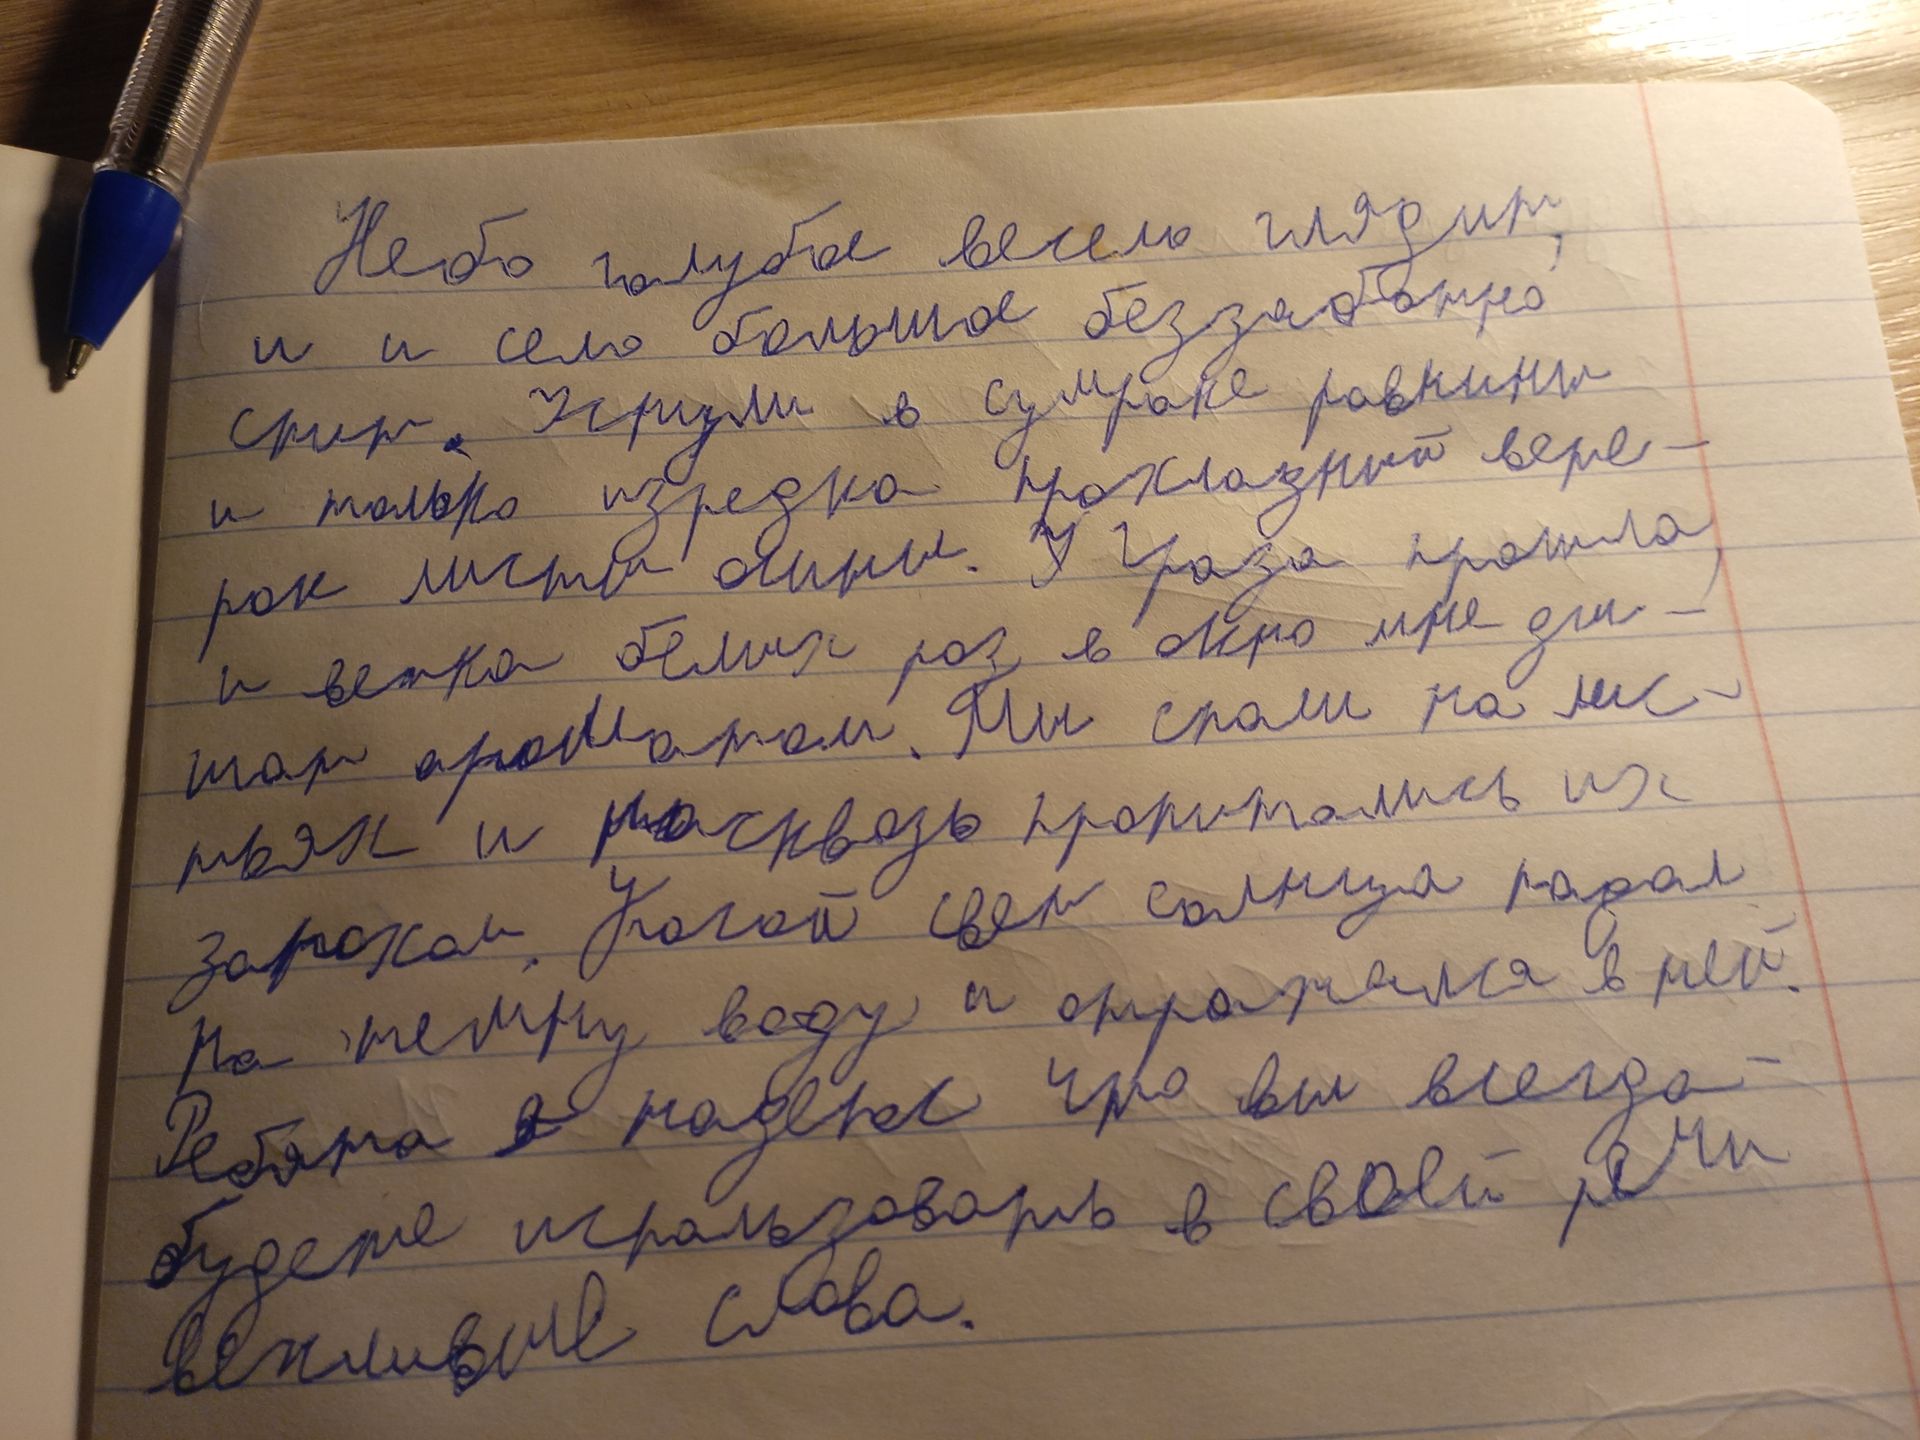 Небо голубое весело глядит,
и и село большое беззаботно
спит. Уснули в сумраке равнины
и только изредка прохладный вете-
рок листы осины. У Гроза прошла,
и ветка белых роз в окно мне ды-
шат ароматом. Мы спали на лис-
тьях и насквозь пропитались их
запахом. Косой свет солнца падал
на темну воду и отражался в ней.
Ребята я надеюс что вы всегда
будете использовать в своей речи
вежливые слова.